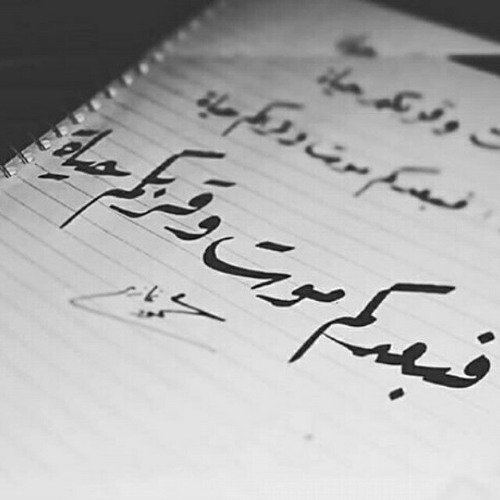 وقربكم حياة
فبعدكم موت وقربكم حياة
فبعدكم موت وقربكم حياة